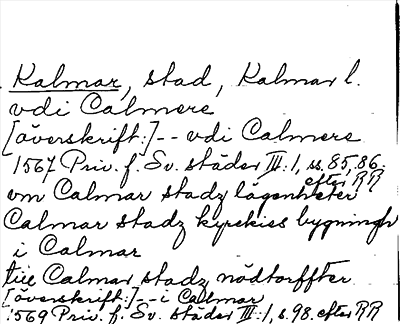 Kalmar, stad, Kalmar l.
vdi Calmere
[överskrift:]-- vdi Calmere
1567 Priv. f. Sv. städer III:1, ss. 85, 86.
efter RR
om Calmar stadz lägenheter
Calmar stadz kyrckiss bygningh
i Calmar
till Calmar stadz nödtorffter
[överskrift:]--i Calmar
1569 Priv. f. Sv. städer III:1, s. 98. efter RR